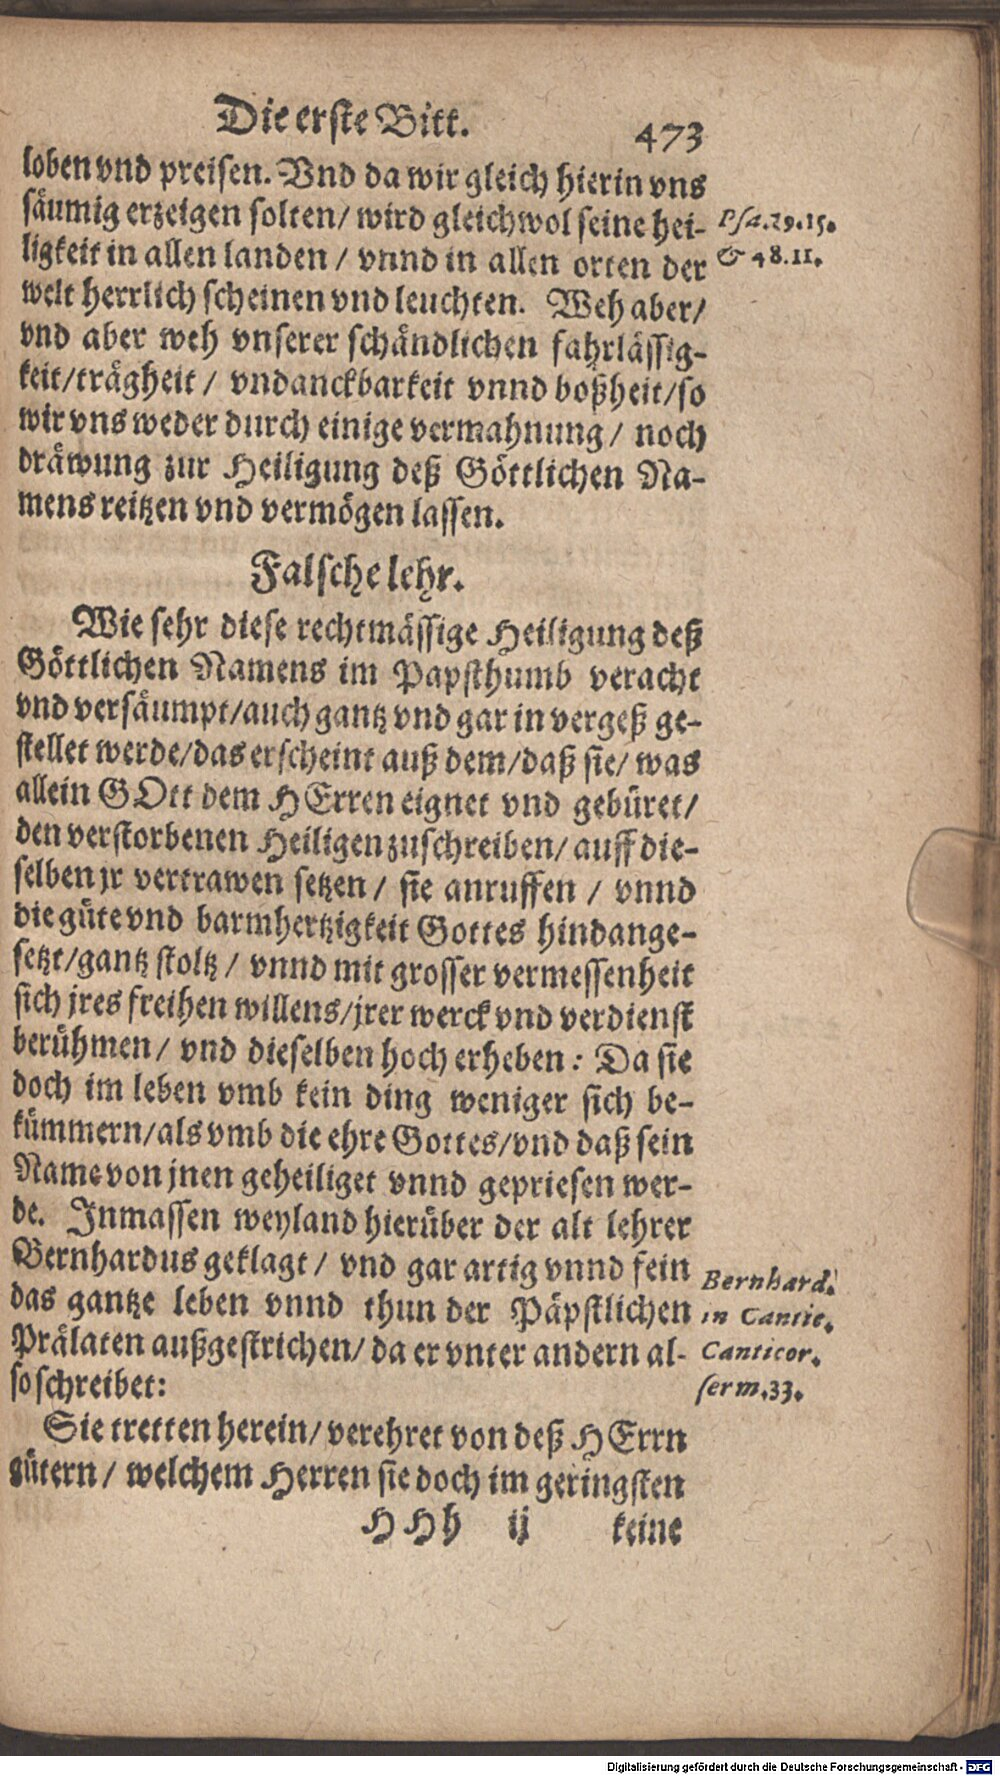 Die erste Bitt. 473
loben vnd preisen. Vnd da wir gleich hierin vns
säumig erzeigen solten/ wird gleichwol seine hei-
ligkeit in allen landen / vnnd in allen orten der
welt herrlich scheinen vnd leuchten. Weh aber/
vnd aber weh vnserer schändlichen fahrlässig-
keit/trägheit / vndanckbarkeit vnnd boßheit/so
wir vns weder durch einige vermahnung / noch
dräwung zur Heiligung deß Göttlichen Na-
mens reitzen vnd vermögen lassen.
Psa.29.15.
& 48.11.
Falsche lehr.
Wie sehr diese rechtmässige Heiligung deß
Göttlichen Namens im Papsthumb veracht
vnd versäumpt/auch gantz vnd gar in vergeß ge-
stellet werde/das erscheint auß dem/daß sie/ was
allein GOtt dem HErren eignet vnd gebüret/
den verstorbenen Heiligen zuschreiben/ auff die-
selben jr vertrawen setzen / sie anruffen / vnnd
die güte vnd barmhertzigkeit Gottes hindange-
setzt/gantz stoltz / vnnd mit grosser vermessenheit
sich jres freihen willens/jrer werck vnd verdienst
berühmen / vnd dieselben hoch erheben: Da sie
doch im leben vmb kein ding weniger sich be-
kümmern/als vmb die ehre Gottes/vnd daß sein
Name von jnen geheiliget vnnd gepriesen wer-
de. Inmassen weyland hierüber der alt lehrer
Bernhardus geklagt / vnd gar artig vnnd fein
das gantze leben vnnd thun der Päpstlichen
Prälaten außgestrichen/ da er vnter andern al-
so schreibet:
Bernhard.
in Cantic.
Canticor.
serm.33.
Sie tretten herein/ verehret von deß HErrn
gütern / welchem Herren sie doch im geringsten
HHh ij keine
Digitalisierung gefördert durch die Deutsche Forschungsgemeinschaft - DFG